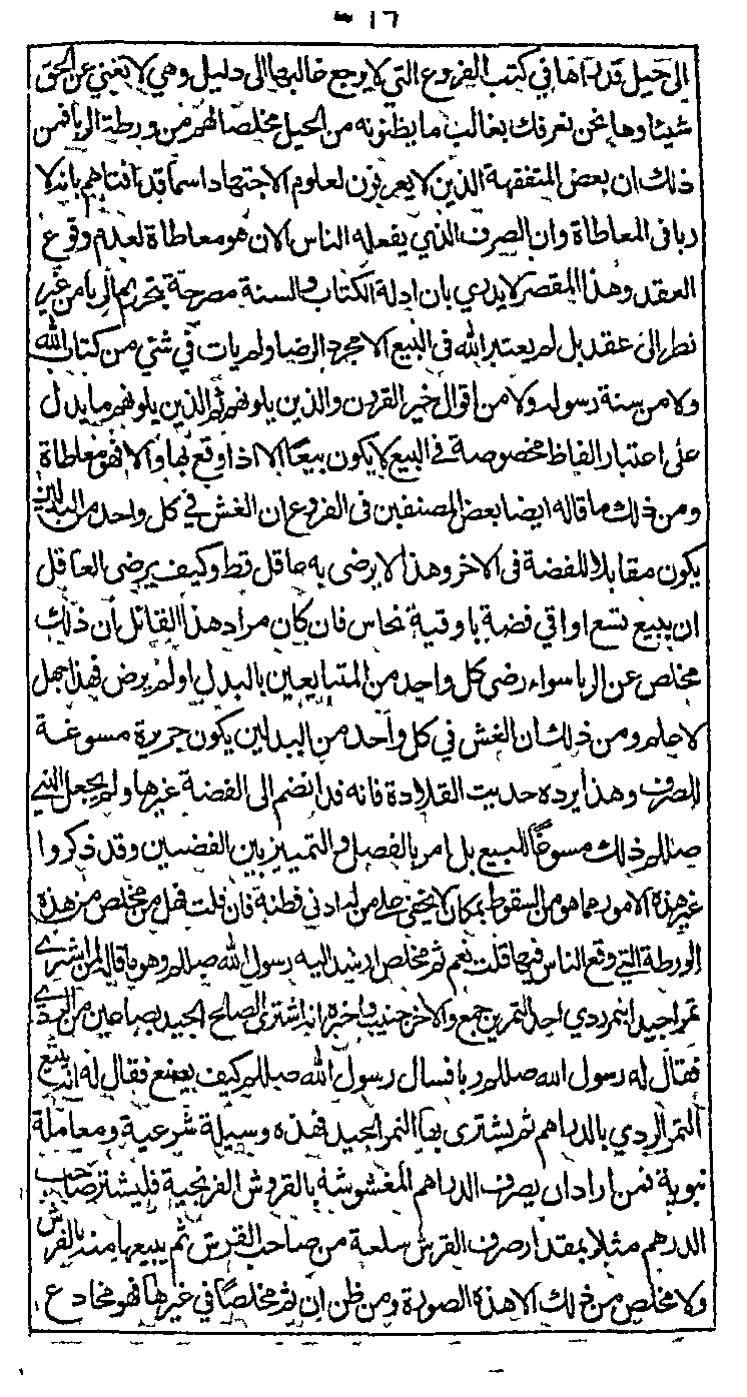 ١٦
الى حيل قد رآها في كتب الفروع التي لا يرجع غالبها الى دليل وهي لا تغني عن الحق
شيئا وها نحن نعرفك بغالب ما يظنونه من الحيل مخلصا لهم من ورطة الربا فمن
ذلك ان بعض المتفقهة الذين لا يعرفون لعلوم الاجتهاد اسما قد افتاهم بانه لا
ربا في المعاطاة وان الصرف الذي يفعله الناس الان هو معاطاة لعدم وقوع
العقد وهذا المقصر لا يدري بان ادلة الكتاب والسنة مصرحة بتحريم الربا من غير
نظر الى عقد بل لم يعتبر الله في البيع الا مجرد الرضا ولم يات في شئ من كتاب الله
ولا من سنة رسوله ولا من اقوال خير القرون والذين يلونهم ثم الذين يلونهم ما يدل
على اعتبار الفاظ مخصوصة في البيع لا يكون بيعا الا اذا وقع بها والا فهو معاطاة
ومن ذلك ما قاله ايضا بعض المصنفين في الفروع ان الغش في كل واحد من البدلين
يكون مقابلا للفضة في الاخر وهذا لا يرضى به عاقل قط وكيف يرضى العاقل
ان يبيع تسع اواقي فضة باوقية نحاس فان كان مراد هذا القائل أن ذلك
مخلص عن الربا سواء رضى كل واحد من المتبايعين بالبدل او لم يرض فهذا جهل
لا علم ومن ذلك ان الغش في كل واحد من البدلين يكون جريرة مسوغة
للصرف وهذا يرده حديث القلادة فانه قد انضم الى الفضة غيرها ولم يجعل النبي
صللم ذلك مسوغًا للبيع بل امر بالفصل والتمييز بين الفضتين وقد ذكروا
غير هذه الامور مما هو من السقوط بمكان لا يخفى على من له ادنى فطنة فان قلت فهل من مخلص من هذه
الورطة التي وقع الناس فيها قلت نعم ثم مخلص ارشد اليه رسول الله صللم وهو ما قاله لمن اشترى
تمرا جيدا بتمر ردي احد التمرين جمع والاخر جنيب واخبره انه اشترى الصالح الجيد بصاعين من الردي
فقال له رسول الله صللم ربا فسال رسول الله صللم كيف يصنع فقال له انه يبيع
التمر الردي بالدراهم ثم يشترى بها التمر الجيد فهذه وسيلة شرعية ومعاملة
نبوية فمن اراد ان يصرف الدراهم المغشوشة بالقروش الفرنجية فليشتر صاحب
الدرهم مثلا بمقدار صرف القرش سلعة من صاحب القرش ثم يبيعها منه بالقرش
ولا مخلص من ذلك الا هذه الصورة ومن ظن ان ثم مخلصًا في غيرها فهو مخادع